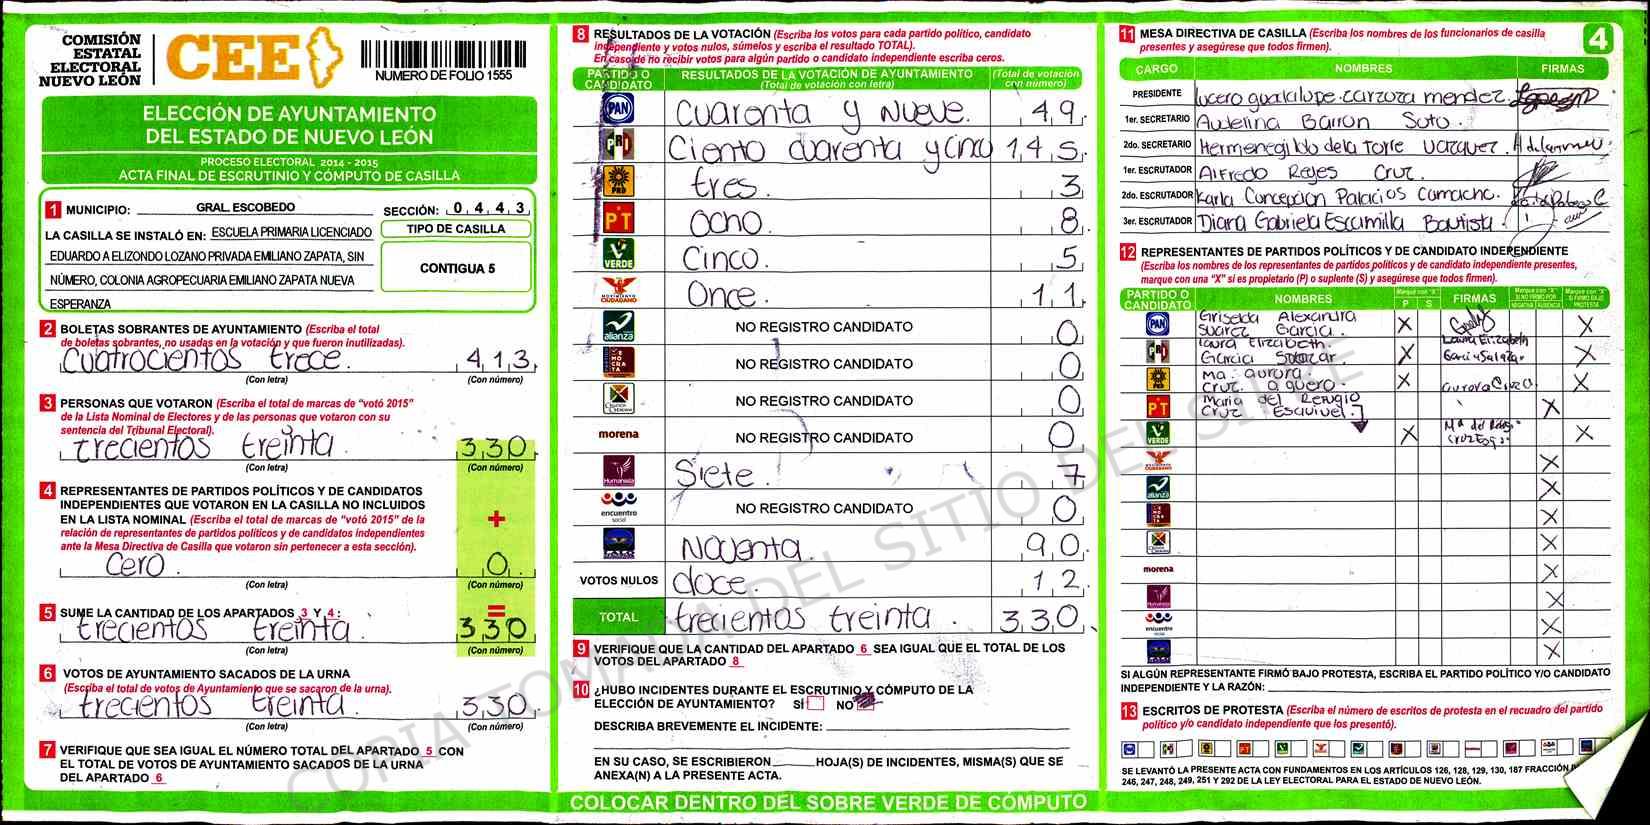 COMISIÓN
ESTATAL
ELECTORAL
NUEVO LEÓN
CEE
NUMERO DE FOLIO 1555
ELECCIÓN DE AYUNTAMIENTO
DEL ESTADO DE NUEVO LEÓN
PROCESO ELECTORAL 2014 - 2015
ACTA FINAL DE ESCRUTINIO Y CÓMPUTO DE CASILLA
1 MUNICIPIO: GRAL. ESCOBEDO SECCIÓN: 0 4 4 3
LA CASILLA SE INSTALÓ EN: ESCUELA PRIMARIA LICENCIADO
EDUARDO A ELIZONDO LOZANO PRIVADA EMILIANO ZAPATA, SIN
NÚMERO, COLONIA AGROPECUARIA EMILIANO ZAPATA NUEVA
ESPERANZA
TIPO DE CASILLA
CONTIGUA 5
2 BOLETAS SOBRANTES DE AYUNTAMIENTO (Escriba el total
de boletas sobrantes, no usadas en la votación y que fueron inutilizadas).
Cuatrocientos trece 413
(Con letra) (Con número)
3 PERSONAS QUE VOTARON (Escriba el total de marcas de "votó 2015"
de la Lista Nominal de Electores y de las personas que votaron con su
sentencia del Tribunal Electoral).
trecientos treinta 330
(Con letra) (Con número)
4 REPRESENTANTES DE PARTIDOS POLÍTICOS Y DE CANDIDATOS
INDEPENDIENTES QUE VOTARON EN LA CASILLA NO INCLUIDOS
EN LA LISTA NOMINAL (Escriba el total de marcas de "votó 2015" de la
relación de representantes de partidos políticos y de candidatos independientes
ante la Mesa Directiva de Casilla que votaron sin pertenecer a esta sección).
+
Cero. 0
(Con letra) (Con número)
=
5 SUME LA CANTIDAD DE LOS APARTADOS 3 Y 4:
trecientos treinta. 330
(Con letra) (Con número)
6 VOTOS DE AYUNTAMIENTO SACADOS DE LA URNA
(Escriba el total de votos de Ayuntamiento que se sacaron de la urna).
trecientos treinta. 330
(Con letra) (Con número)
7 VERIFIQUE QUE SEA IGUAL EL NÚMERO TOTAL DEL APARTADO 5 CON
EL TOTAL DE VOTOS DE AYUNTAMIENTO SACADOS DE LA URNA
DEL APARTADO 6
8 RESULTADOS DE LA VOTACIÓN (Escriba los votos para cada partido político, candidato
independiente y votos nulos, súmelos y escriba el resultado TOTAL).
En caso de no recibir votos para algún partido o candidato independiente escriba ceros.
PARTIDO O CANDIDATO RESULTADOS DE LA VOTACIÓN DE AYUNTAMIENTO (Total de votación con letra) (Total de votación con número)
PAN Cuarenta y Nueve. 49
PRI Ciento cuarenta y cinco 145
PRD tres. 3
PT Ocho 8
VERDE Cinco. 5
MOVIMIENTO CIUDADANO Once. 11
alianza NO REGISTRO CANDIDATO 0
DEMOCRATA NO REGISTRO CANDIDATO 0
NO REGISTRO CANDIDATO 0
morena NO REGISTRO CANDIDATO 0
Humanista Siete. 7
encuentro social NO REGISTRO CANDIDATO 0
Noventa. 90
VOTOS NULOS doce. 12
TOTAL trecientos treinta. 330
9 VERIFIQUE QUE LA CANTIDAD DEL APARTADO 6 SEA IGUAL QUE EL TOTAL DE LOS
VOTOS DEL APARTADO 8
10 ¿HUBO INCIDENTES DURANTE EL ESCRUTINIO Y CÓMPUTO DE LA
ELECCIÓN DE AYUNTAMIENTO? SÍ NO
DESCRIBA BREVEMENTE EL INCIDENTE:
EN SU CASO, SE ESCRIBIERON HOJA(S) DE INCIDENTES, MISMA(S) QUE SE
ANEXA(N) A LA PRESENTE ACTA.
COLOCAR DENTRO DEL SOBRE VERDE DE CÓMPUTO
11 MESA DIRECTIVA DE CASILLA (Escriba los nombres de los funcionarios de casilla
presentes y asegúrese que todos firmen).
4
CARGO NOMBRES FIRMAS
PRESIDENTE lucero guadalupe zarzoza mendez.
1er. SECRETARIO Audelina Barron Soto.
2do. SECRETARIO Hermenegildo de la Torre Vazquez.
1er. ESCRUTADOR Alfredo Reyes Cruz.
2do. ESCRUTADOR Karla Concepcion Palacios Camacho.
3er. ESCRUTADOR Diana Gabriela Escamilla Bautista
12 REPRESENTANTES DE PARTIDOS POLÍTICOS Y DE CANDIDATO INDEPENDIENTE
(Escriba los nombres de los representantes de partidos políticos y de candidato independiente presentes,
marque con una "X" si es propietario (P) o suplente (S) y asegúrese que todos firmen).
PARTIDO O CANDIDATO NOMBRES Marque con "X" P S FIRMAS Marque con "X" SI NO FIRMO POR NEGATIVA AUSENCIA Marque con "X" SI FIRMO BAJO PROTESTA
PAN Griselda Alexandra Suarez Garcia. X X
PRI Laura Elizabeth. Garcia Salazar X Laura Elizabeth Garcia Salazar X
PRD Ma. aurora. Cruz aguero. X aurora Cruz a. X
PT Maria del Refugio Cruz Esquivel. X
VERDE X X
MOVIMIENTO CIUDADANO X
alianza X
X
X
morena X
Humanista X
encuentro social X
X
SI ALGÚN REPRESENTANTE FIRMÓ BAJO PROTESTA, ESCRIBA EL PARTIDO POLÍTICO Y/O CANDIDATO
INDEPENDIENTE Y LA RAZÓN:
13 ESCRITOS DE PROTESTA (Escriba el número de escritos de protesta en el recuadro del partido
político y/o candidato independiente que los presentó).
SE LEVANTÓ LA PRESENTE ACTA CON FUNDAMENTOS EN LOS ARTÍCULOS 126, 128, 129, 130, 187 FRACCIÓN
246, 247, 248, 249, 251 Y 292 DE LA LEY ELECTORAL PARA EL ESTADO DE NUEVO LEÓN.
COPIA TOMADA DEL SITIO DEL SIPRE